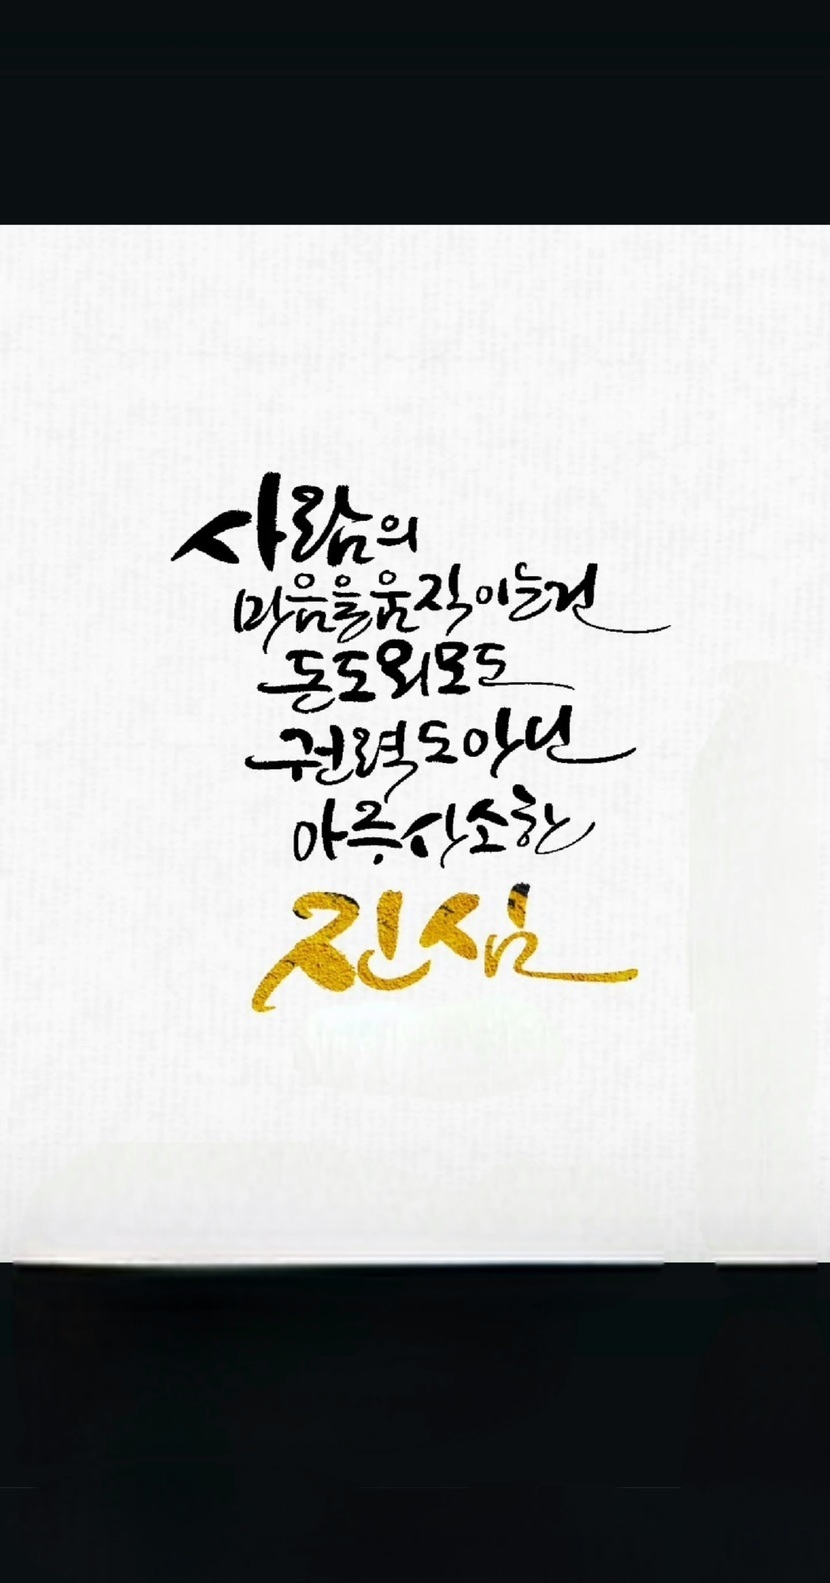 사람의
마음을 움직이는 건
돈도 외모도
권력도 아닌
아주 사소한
진심